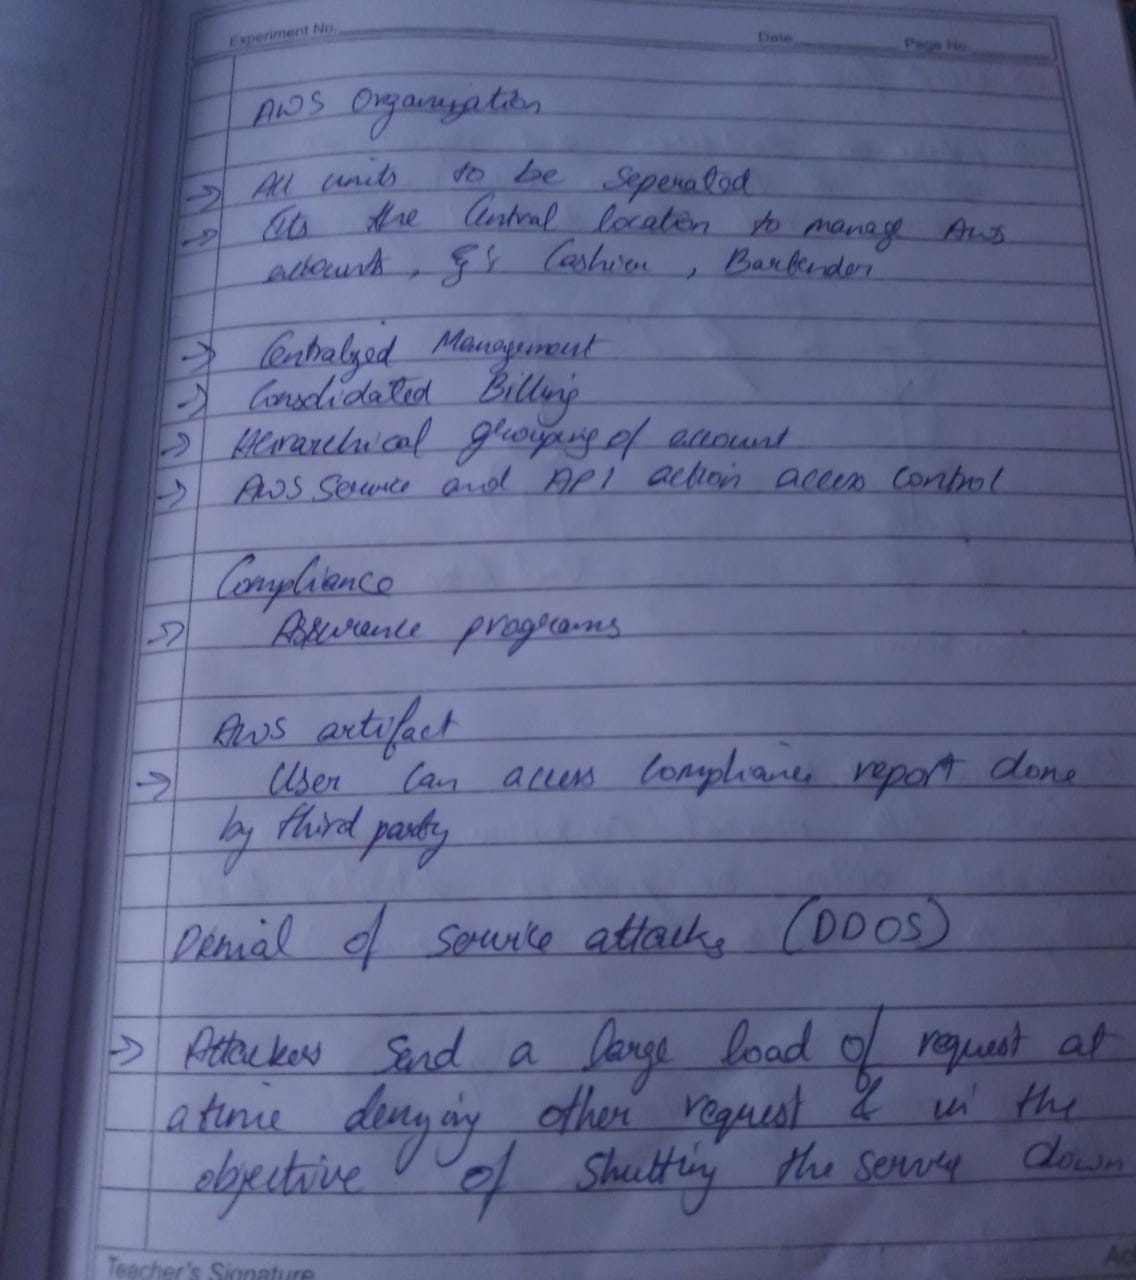 Experiment No.
Date
Page No.
AWS Organization
→ All units to be seperated
→ Its the Central location to manage AWS
accounts, Cashier, Bartender
→ Centralized Management
→ Consolidated Billing
→ Hierarchical grouping of account
→ AWS Service and API action access control
Compliance
→ Assurance programs
AWS artifact
→ User can access compliance report done
by third party
Denial of Service attacks (DDOS)
→ Attackers Send a large load of request at
a time denying other request & in the
objective of Shutting the server down
Teacher's Signature